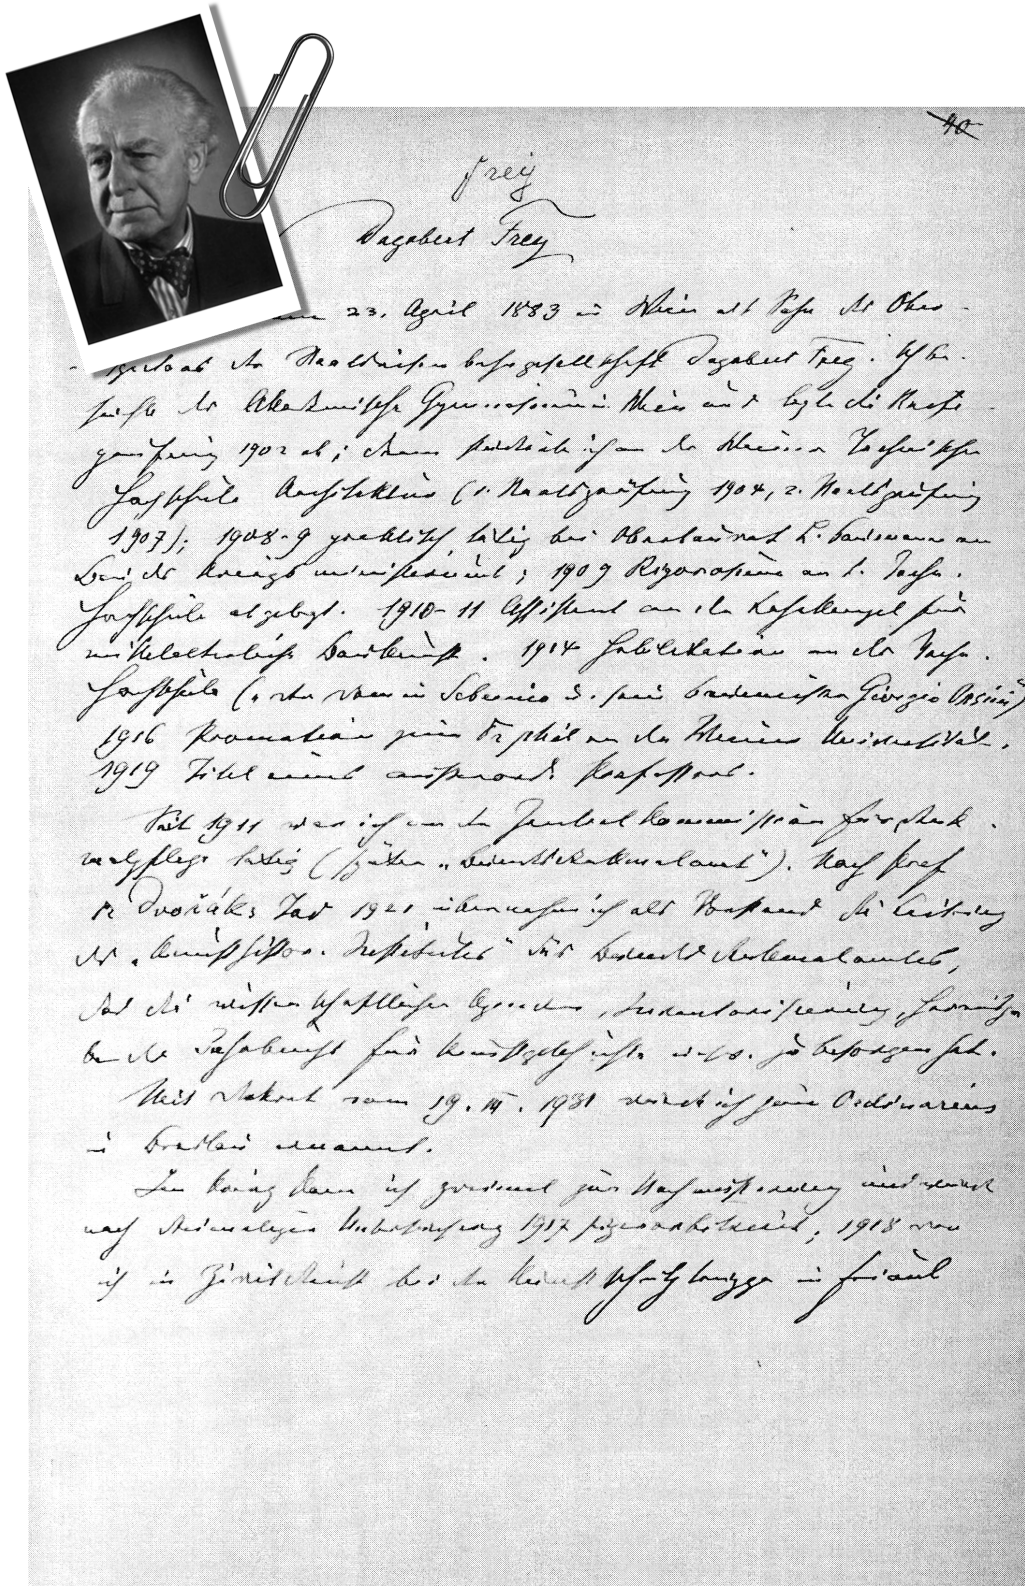 40
Frey
Dagobert Frey
23. April 1883 in Wien als Sohn des Ober-
der Staatseisenbahngesellschaft Dagobert Frey. Ich be-
suchte das Akademische Gymnasium in Wien und legte die Reife-
prüfung 1902 ab; dann studierte ich an der Wiener Technischen
Hochschule Architektur (1. Staatsprüfung 1904, 2. Staatsprüfung
1907); 1908-9 praktisch tätig bei Oberbaurat L. Baumann am
Bau des Kriegsministeriums; 1909 Rigorosum an d. Techn.
Hochschule abgelegt. 1910-11 Assistent an der Lehrkanzel für
mittelalterliche Baukunst. 1914 Habilitation an der Techn.
Hochschule (, der Dom in Sebenico u. sein Baumeister Giorgio Orsini")
1916 Promotion zum Dr phil an der Wiener Universität.
1919 Titel eines ausserord. Professors.
Seit 1911 war ich an der Zentralkommission für Denk-
malpflege tätig (später „Bundesdenkmalamt"). Nach Prof
Dr Dvořáks Tod 1921 übernahm ich als Vorstand die Leitung
des „Kunsthistor. Institutes" des Bundesdenkmalamtes,
das die wissenschaftlichen Agenden, Inventarisierung, Herausga-
be der Jahrbuchs für Kunstgeschichte u.s.w. zu besorgen hat.
Mit Dekret vom 19. III. 1931 wurde ich zum Ordinarius
in Breslau ernannt.
Im Krieg kam ich zweimal zur Nachmusterung und wurde
nach Untersuchung 1917, 1918 war
ich in Zivildienst bei der Kunstschutzgruppe in Friaul